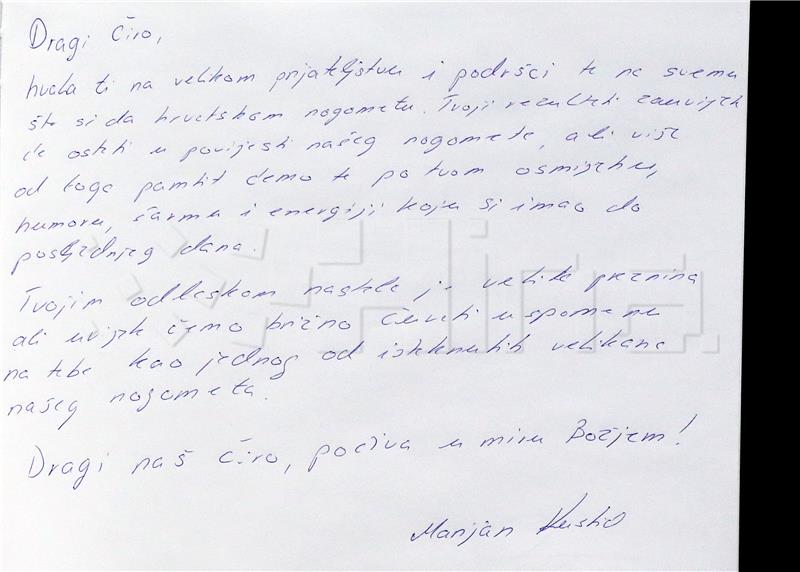 Dragi Ćiro,
hvala ti na velikom prijateljstvu i podršci te na svemu
što si da hrvatskom nogometu. Tvoji rezultati zauvijek
će ostati u povijesti našeg nogometa, ali više
od toga pamtit ćemo te po tvom osmijehu,
humoru, šarmu i energiji koju si imao do
posljednjeg dana.
Tvojim odlaskom nastala je velika praznina
ali uvijek ćemo brižno čuvati uspomenu
na tebe kao jednog od istaknutih velikana
našeg nogometa.
Dragi naš Ćiro, počiva u miru Božjem!
Marijan Kustić
Hina